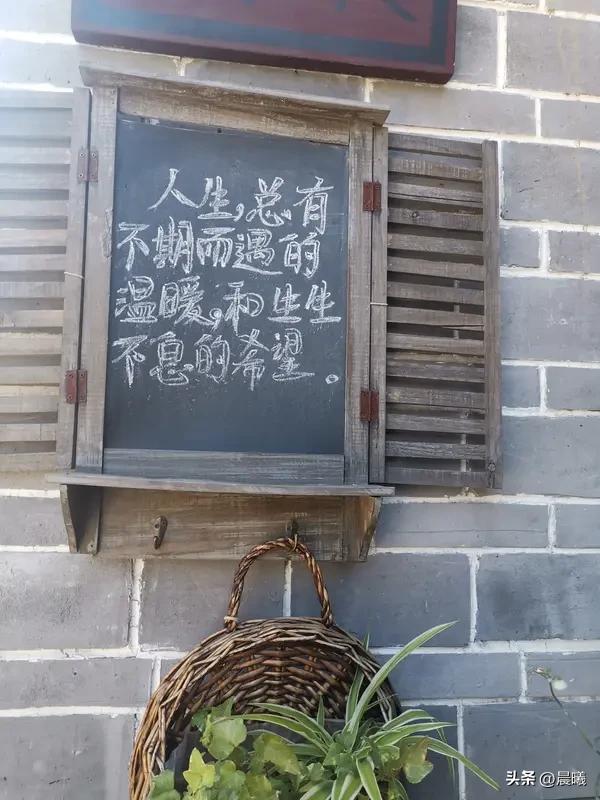 人生,总有
不期而遇的
温暖,和生生
不息的希望。
头条 @晨曦